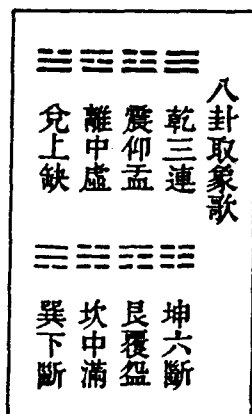 八卦取象歌
☰ 乾三連
☷ 坤六斷
☳ 震仰盂
☶ 艮覆盌
☲ 離中虛
☵ 坎中滿
☱ 兌上缺
☴ 巽下斷